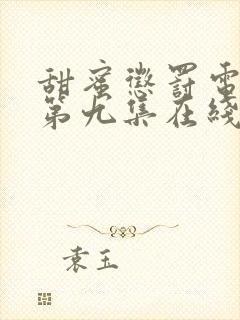 甜蜜懲罰電
第九集在綫
袁玉